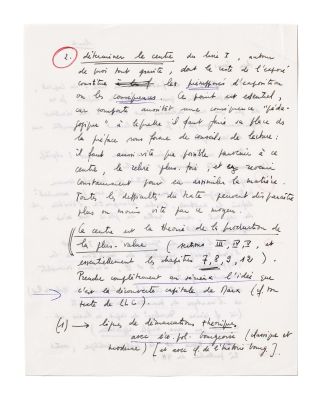 2. déterminer le centre du livre I, autour
de quoi tout gravite, dont le reste de l'exposé
constitue les prémisses d'exposition
ou les conséquences. Ce point est essentiel,
car comporte aussitôt une conséquence "péda-
gogique" à laquelle il faut faire sa place ds
la préface sous forme de conseils de lecture:
il faut aussi vite que possible parvenir à ce
centre, le relire plus. fois, et en revenir
constamment pour en assimiler la matière.
Toutes les difficultés du texte peuvent disparaître
plus ou moins vite par ce moyen.
(le centre est la théorie de la production de
la plus-value (sections III, IV, V, et
essentiellement les chapitres 7, 8, 9, 12).
Prendre complètement au sérieux l'idée que
c'est la découverte capitale de Marx (cf. mon
texte de
(1) → lignes de démarcations théoriques
avec éco. pol. bourgeoise (classique et
moderne) [et avec q. de l'histoire bourg.].